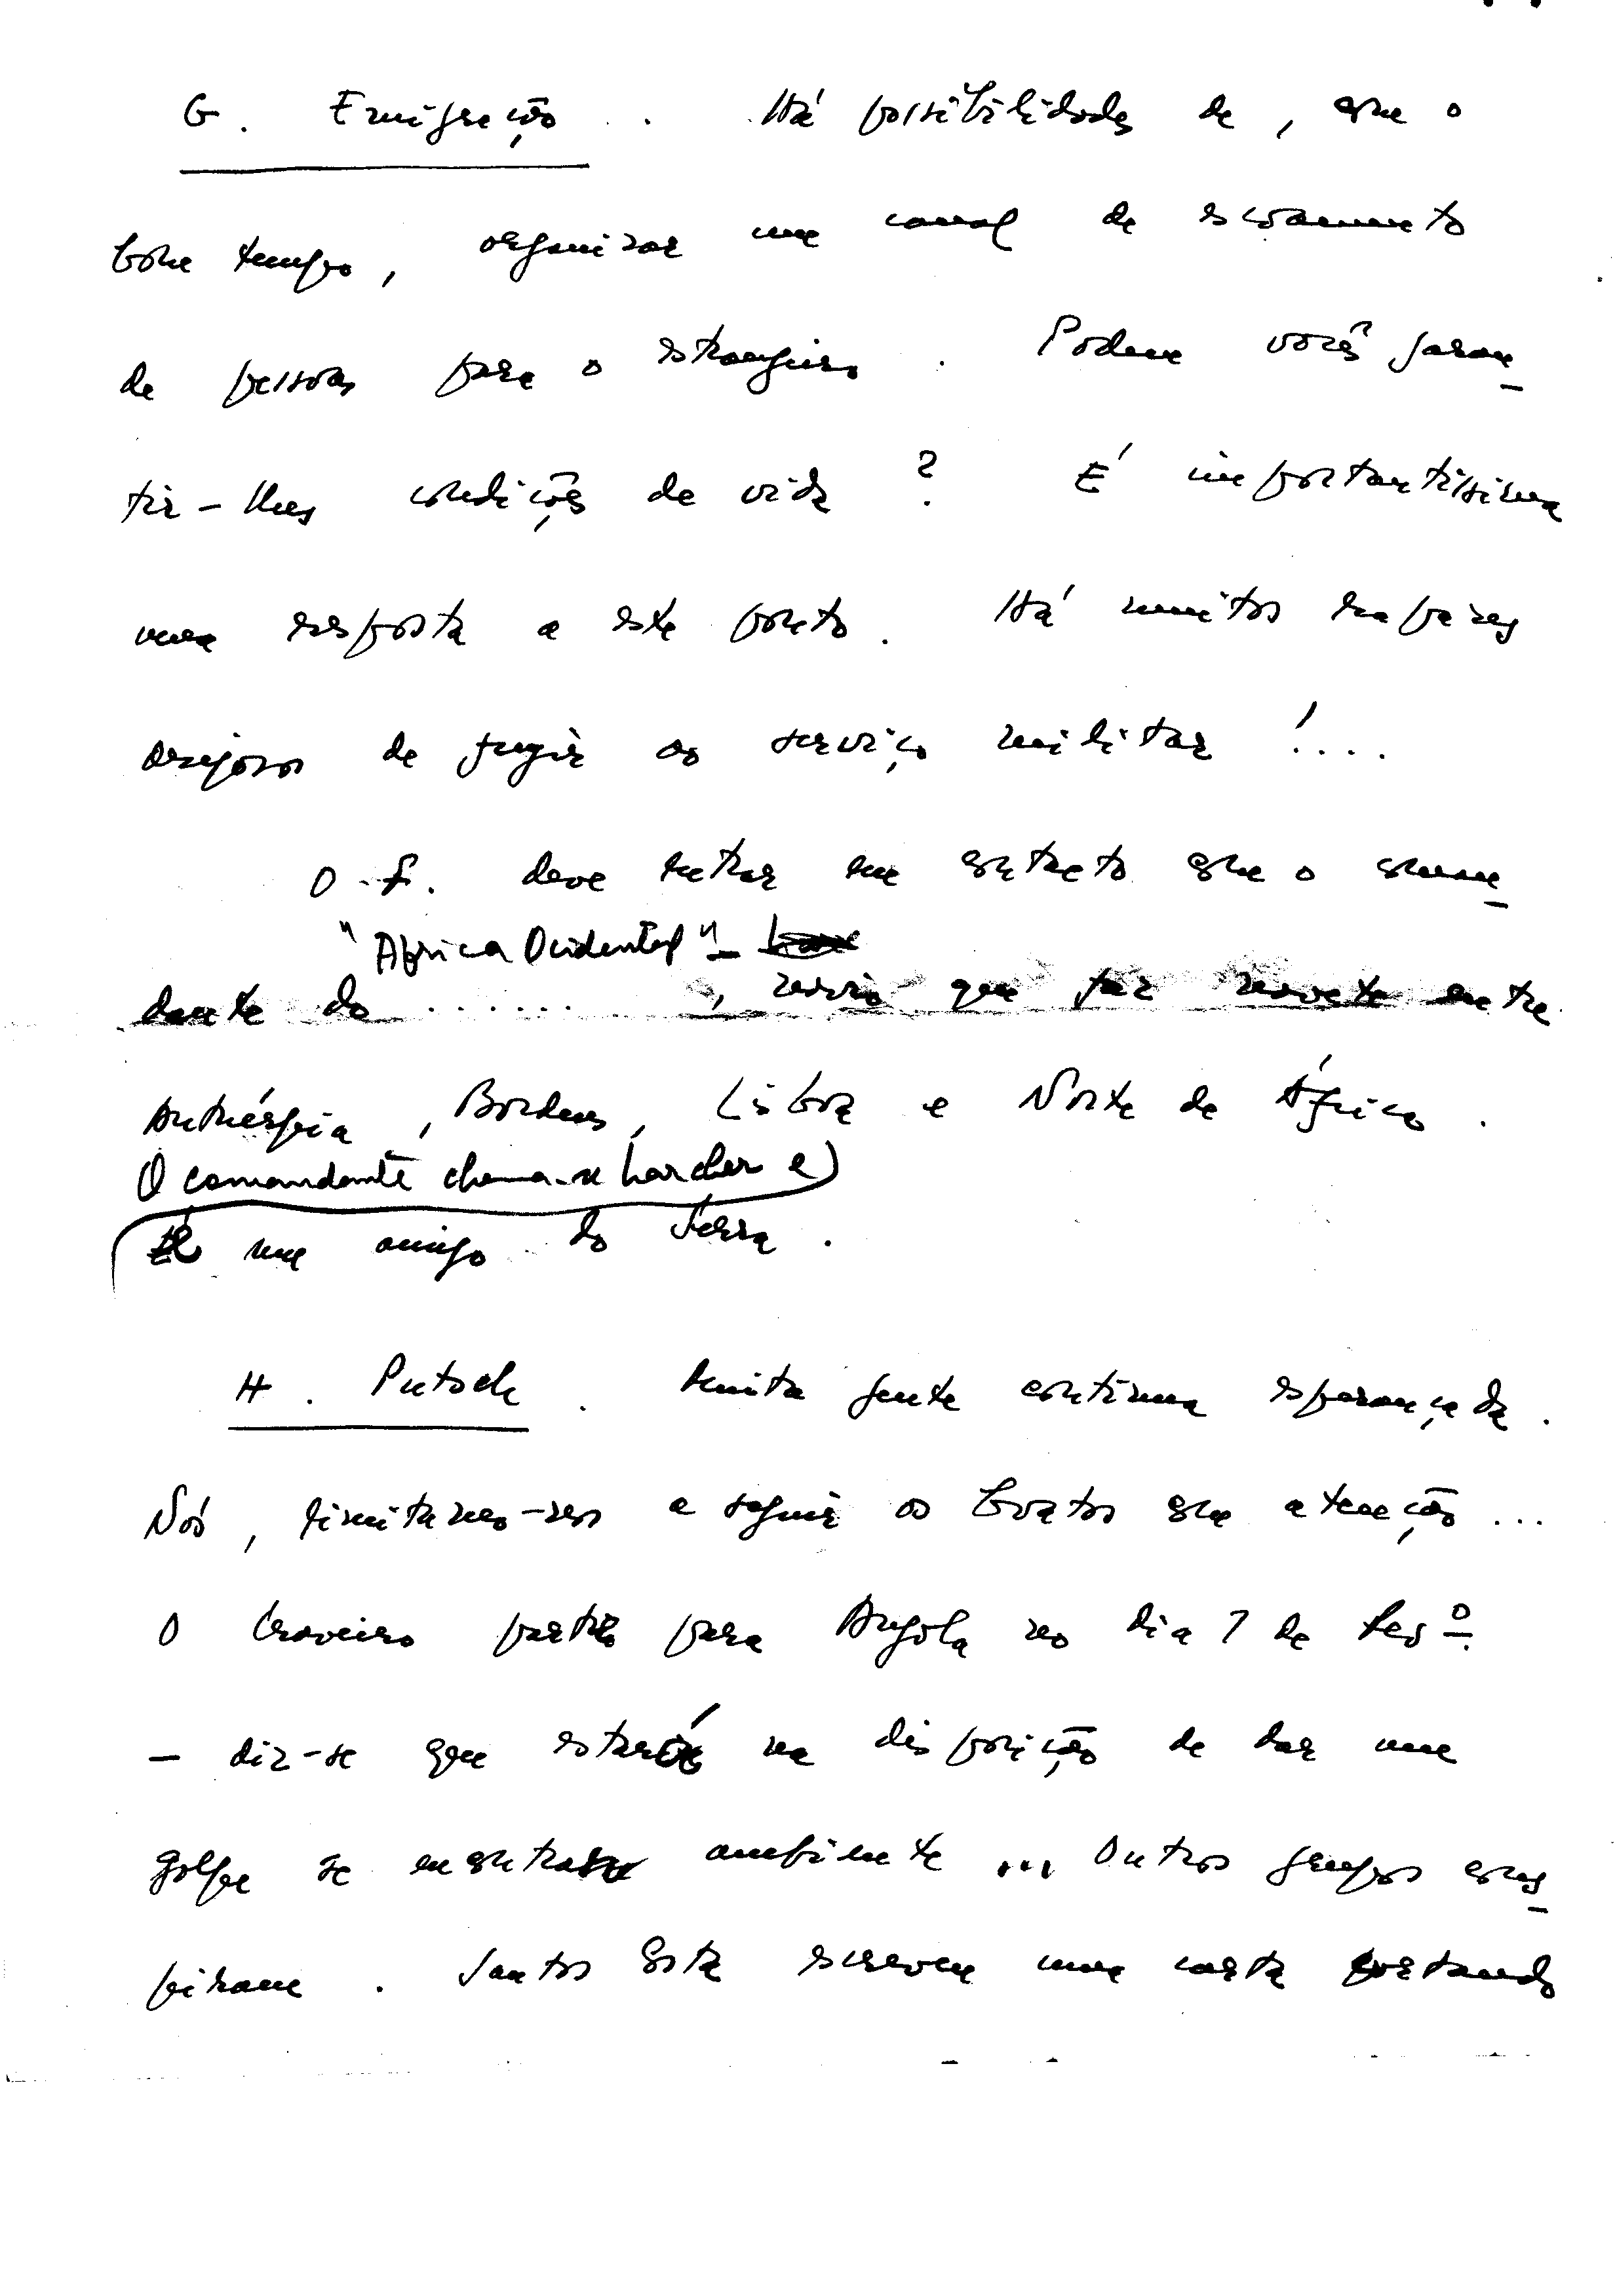 G. Emigração. Há possibilidades de, com o
bom tempo, organizar um canal de escoamento
de pessoas para o estrangeiro. Podem vocês garan-
tir-lhes condições de vida? É importantíssima
uma resposta a este ponto. Há muitos rapazes
desejosos de fugir ao serviço militar!....
O F. deve entrar em contacto com o coman-
"Africa Ocidental" -
dante do ........., navio que faz a entre
Antuérpia, Bordeus, Lisboa e Norte de África.
O comandante chama-se e
É um amigo do Serra.
H. Putsch. Muita gente continua esperançada.
Nós, limitamo-nos a seguir os boatos com atenção...
O Craveiro partiu para Angola no dia 7 de
- diz-se que estará na disposição de dar um
golpe se encontrar ambiente ... Outros grupos cons-
piram. Santos Costa escreveu uma carta cortando